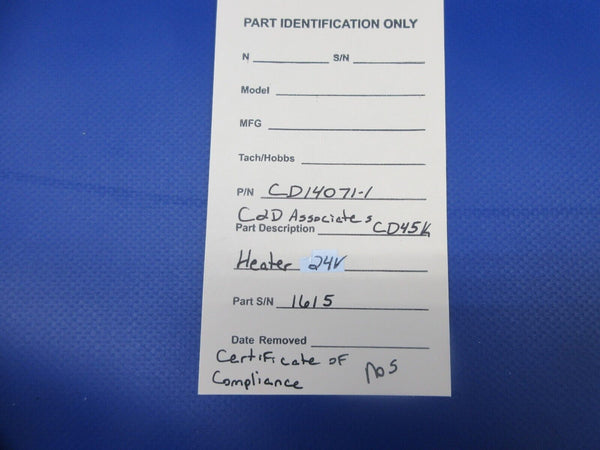 PART IDENTIFICATION ONLY
N S/N
Model
MFG
Tach/Hobbs
P/N CD14071-1
C&D Associates
Part Description CD45K
Heater 24V
Part S/N 1615
Date Removed
Certificate of
Compliance NOS